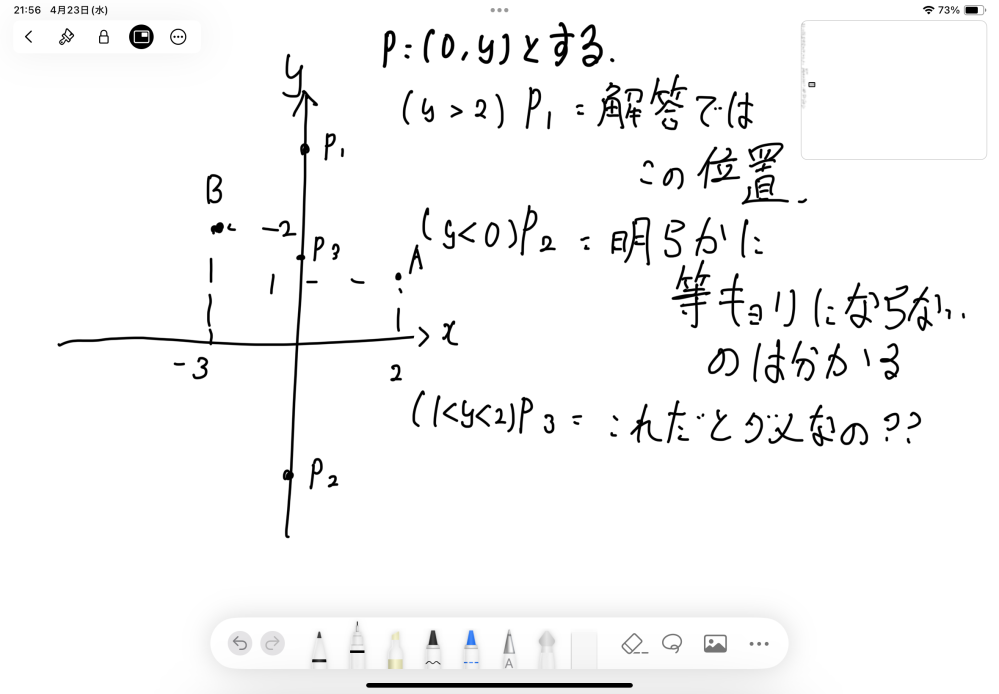 21:56 4月23日(水)
73%
P:(0,y)とする.
y
(y>2) P₁ = 解答では
P₁
この位置.
B
-2
(y<0)P₂ = 明らかに
P₃
A
1
等キョリにならない.
x
-3
2
のは分かる
(1<y<2)P₃ = これだとダメなの??
P₂
A